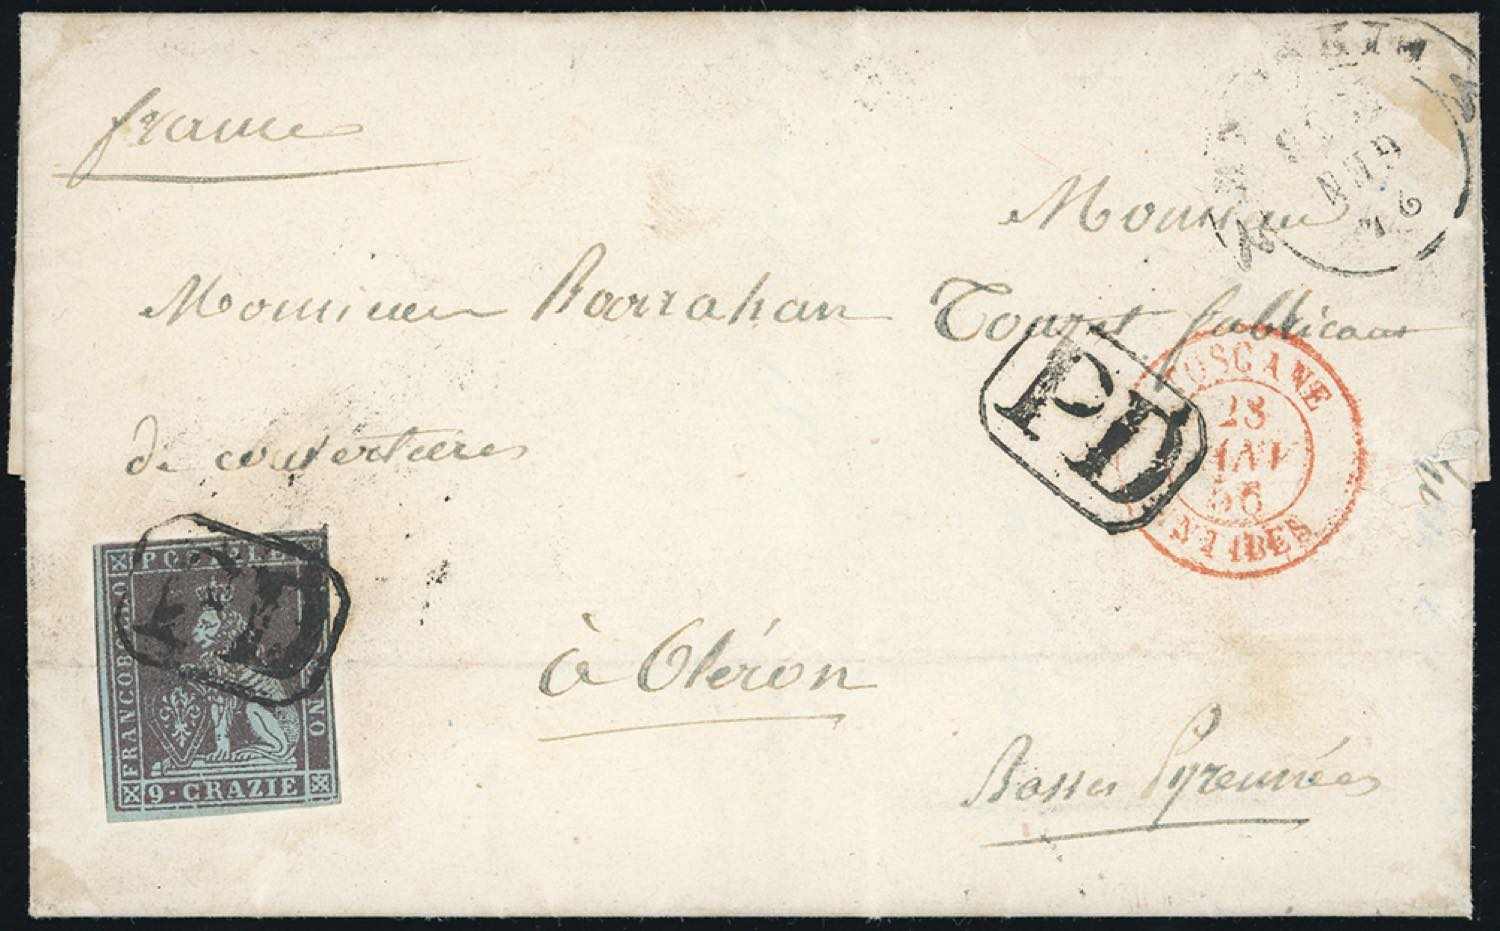 france
Monsieur
Monsieur Barrahan Touzet fabricant
de couvertures
à Oléron
Basses Pyrennées
PD
TOSCANE
28
JANV
56
ANTIBES
26
GEN
PD
FRANCOBOLLO
POSTALE
9 · CRAZIE